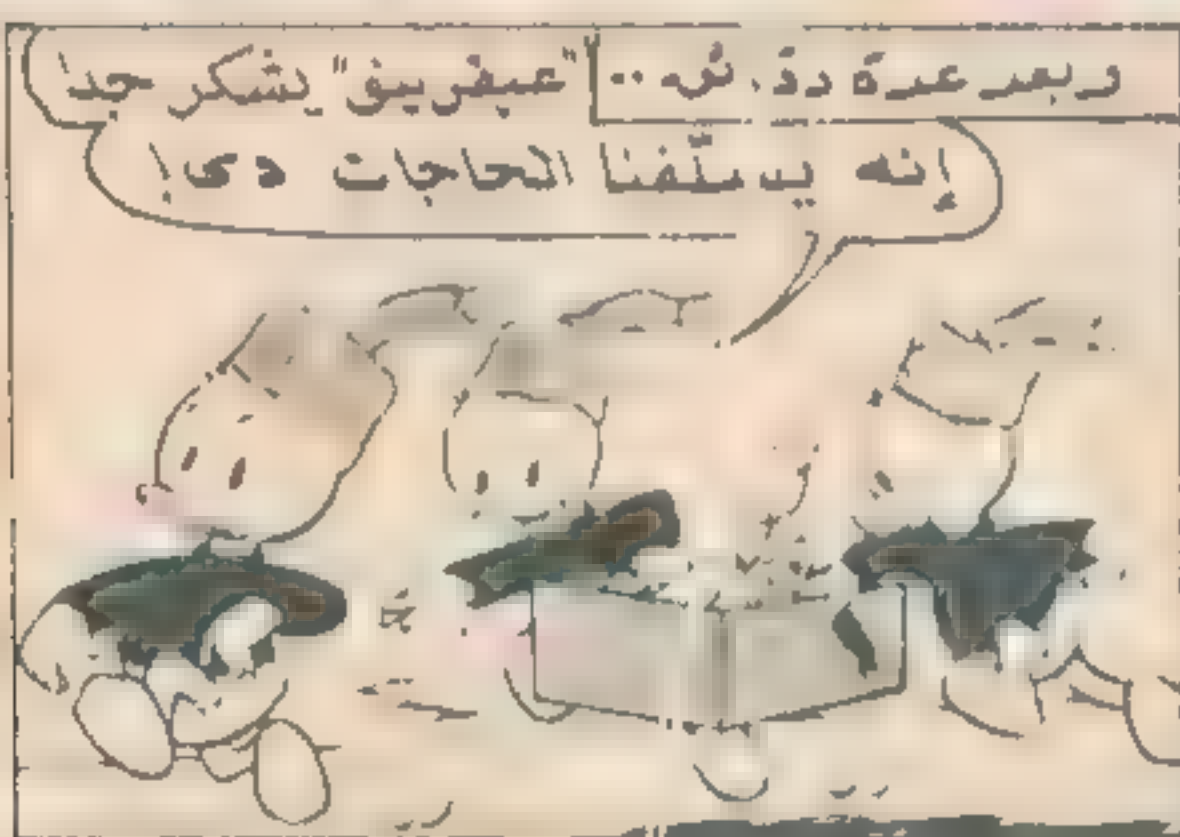 وبعد عدة دقائق ..
"عبقرينو" يشكر جدا
إنه يسلّفنا الحاجات دى!